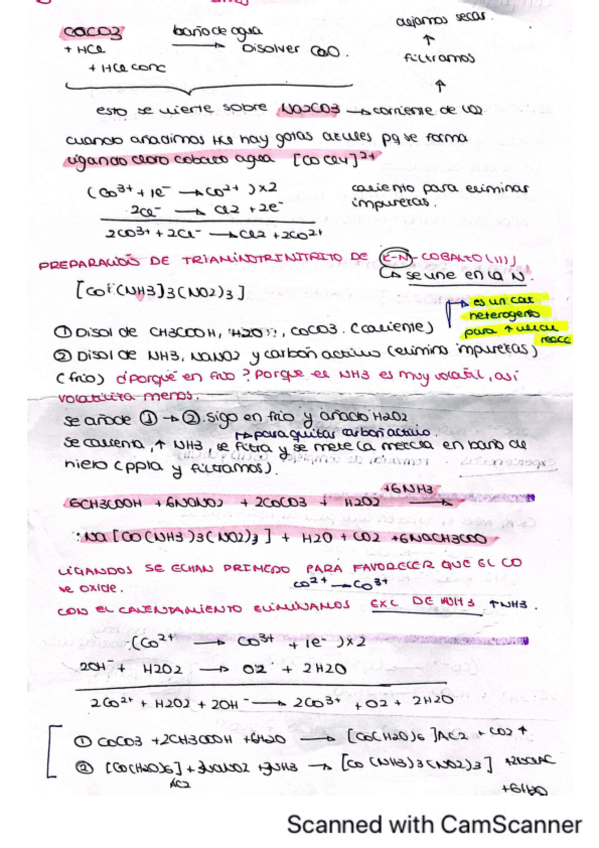 COCO3 baño de agua dejamos secar.
+ HCl → Disolver CoO. ↑
+ HCl conc filtramos
↑
esto se vierte sobre Na2CO3 → corriente de CO2
cuando añadimos HCl hay gotas azules pq se forma
ligando cloro cobalto agua [CoCl4]2+
(Co3+ + 1e- → Co2+)x2 caliento para eliminar
2Cl- → Cl2 + 2e- impurezas.
2CO3+ + 2Cl- → Cl2 + 2CO2+
PREPARACIÓN DE TRIAMINOTRINITRITO DE K-N-COBALTO(III)
↳ se une en la N.
[Co(NH3)3(NO2)3]
→ es un cat
heterogeneo
para ↑
① Disol de CH3COOH, H2O, COCO3. (caliente)
② Disol de NH3, NaNO2 y carbón activo (elimino impurezas)
(frio) ¿porqué en frio? Porque el NH3 es muy volatil, asi
volatiliza menos.
se añade ① → ②. sigo en frio y añado H2O2
→ para quitar carbón activo.
se calienta, ↑ NH3, se filtra y se mete la mezcla en baño de
hielo (ppta y filtramos).
+6NH3
6CH3COOH + 6NaNO2 + 2COCO3 + H2O2 →
Na[CO(NH3)3(NO2)3] + H2O + CO2 + 6NaCH3COO
LIGANDOS SE ECHAN PRIMERO PARA FAVORECER QUE EL CO
se oxide. CO2+ → CO3+
CON EL CALENTAMIENTO ELIMINAMOS EXC DE NH3 ↑NH3.
(Co2+ → Co3+ + 1e-)x2
2OH- + H2O2 → O2 + 2H2O
2Co2+ + H2O2 + 2OH- → 2CO3+ + O2 + 2H2O
① COCO3 + 2CH3COOH + 6H2O → [CO(H2O)6]AC2 + CO2↑
② [CO(H2O)6]AC2 + 3NaNO2 + 3NH3 → [CO(NH3)3(NO2)3]
+6H2O
Scanned with CamScanner